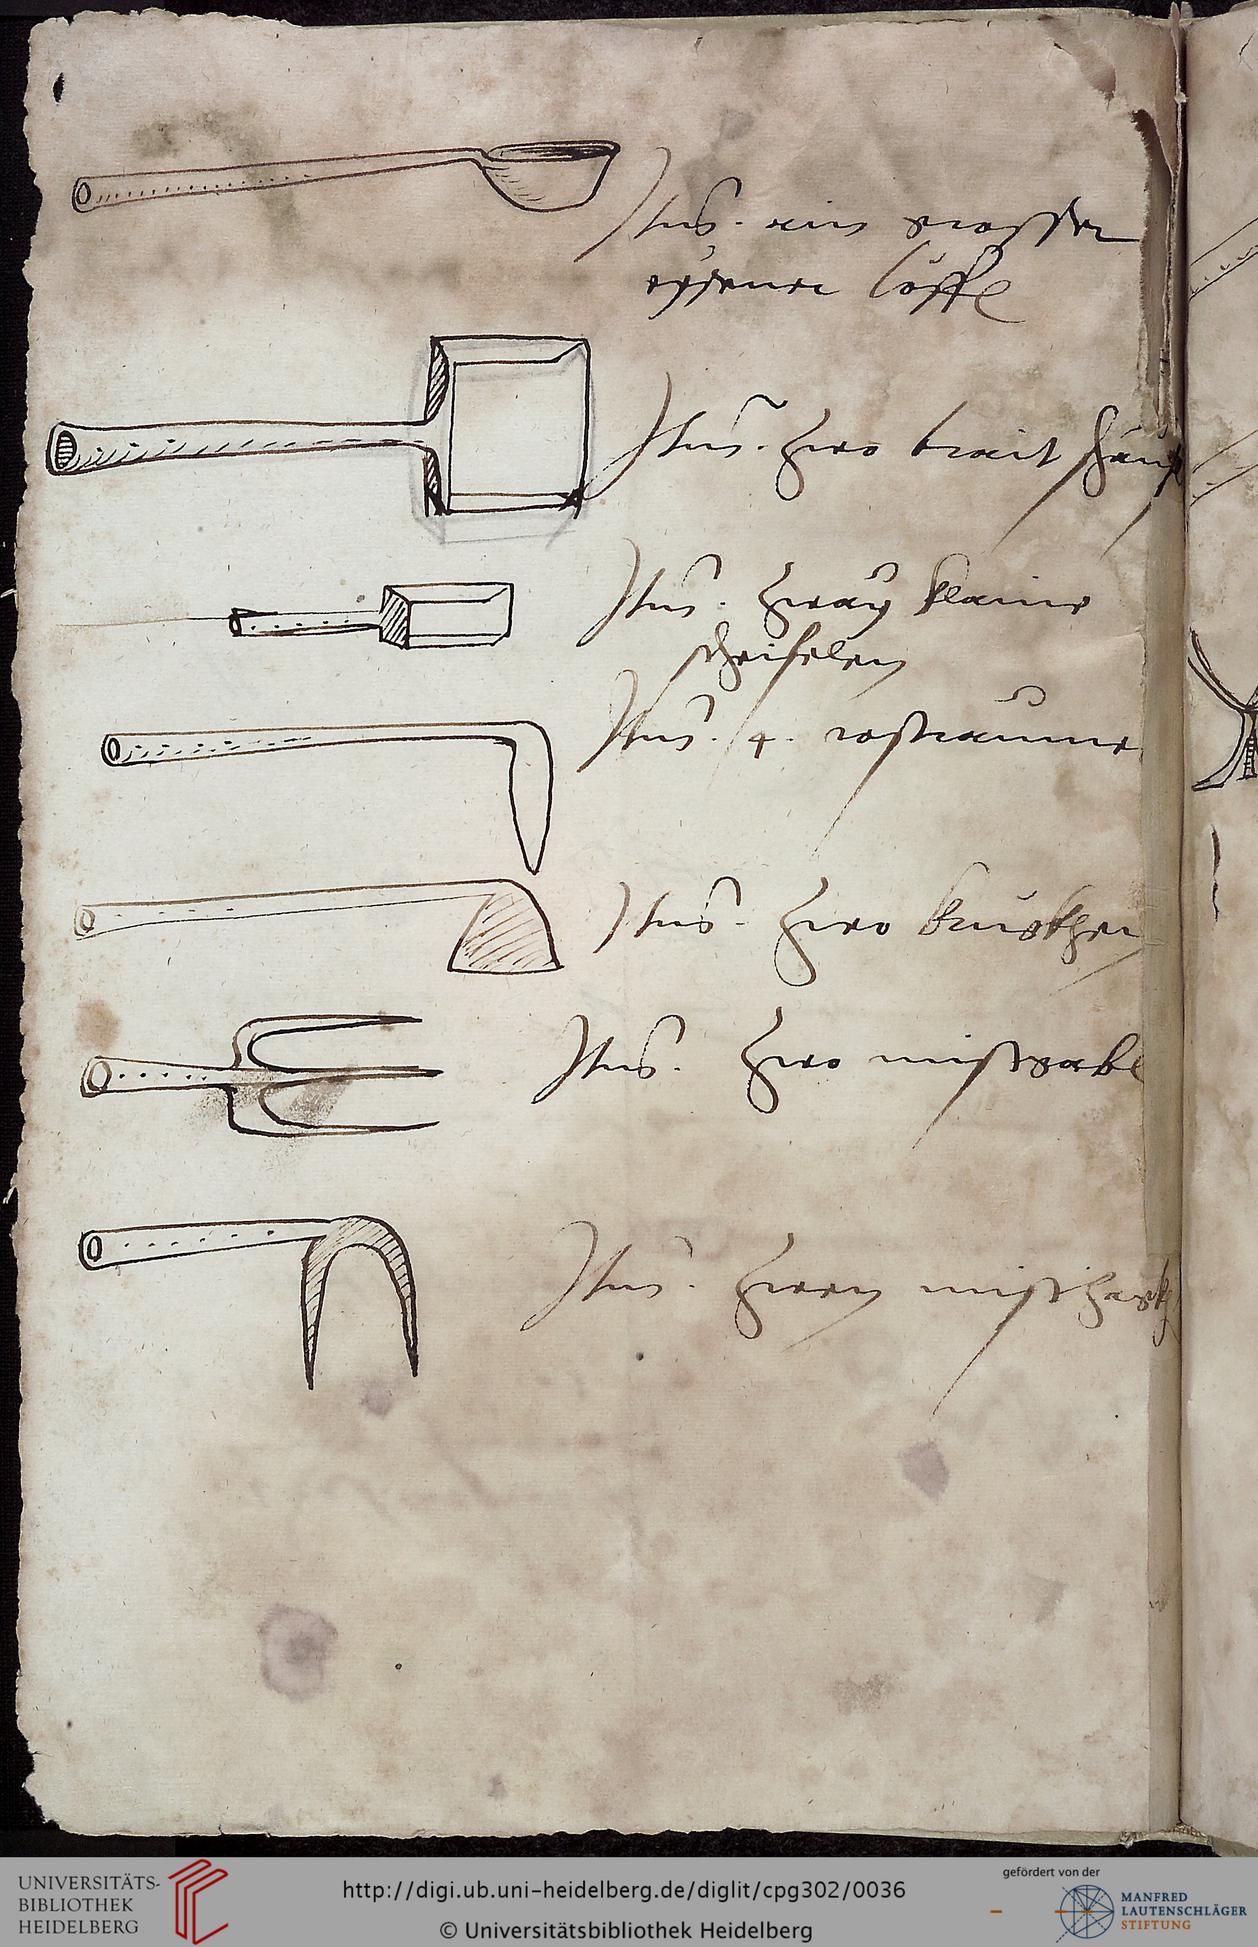 Itm̃. ein grosser
eysener löffl
Itm̃. zwo brait
Itm̃. zway klaine
scheifelen
Itm̃. 4.
Itm̃. zwo
Itm̃. zwo mistgabl
Itm̃. zwen misthack
UNIVERSITÄTS-
BIBLIOTHEK
HEIDELBERG
http://digi.ub.uni-heidelberg.de/diglit/cpg302/0036
© Universitätsbibliothek Heidelberg
gefördert von der
MANFRED
LAUTENSCHLÄGER
STIFTUNG